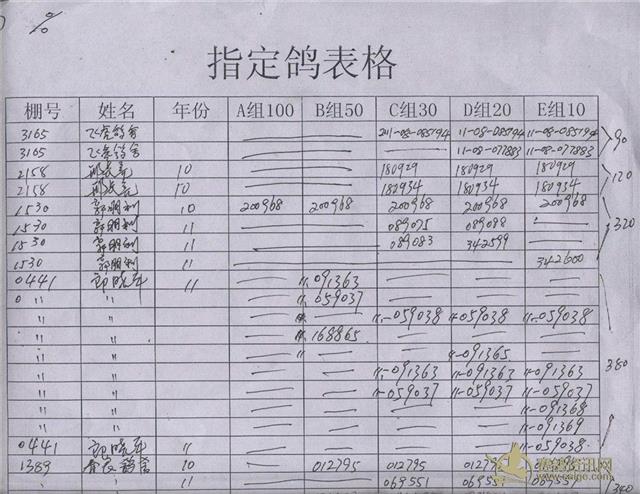 %
指定鸽表格
棚号 姓名 年份 A组100 B组50 C组30 D组20 E组10
3165 飞虎鸽舍 — — 2011-08-085794 11-08-085794 11-08-085794 90
3165 飞虎鸽舍 — — — 11-08-077883 11-08-077883
2158 10 — — 180929 180929 180929 120
2158 10 — — 180934 180934 180934
1530 郭朋利 10 200968 200968 200968 200968 200968
1530 郭朋利 11 — — 089075 089088 — 320
1530 郭朋利 11 — — 089083 342599 —
1530 郭朋利 11 — — — — 342600
0441 郭晓军 11 — 11-091363 — — —
0 〃 〃 — 11-059037 — — —
〃 〃 — — 11-059038 11-059038 11-059038
〃 〃 — 11-168865 — — —
〃 〃 — — — 11-091365 — 380
〃 〃 — — 11-091363 11-091363 11-091363
〃 〃 — — 11-059037 11-059037 11-059037
〃 〃 — — — — 11-091368
〃 〃 — — — — 11-091369
0441 郭晓军 11 — — — — 11-059038
1389 10 — 012795 012795 012795
〃 11 — — 069551 069551 069551